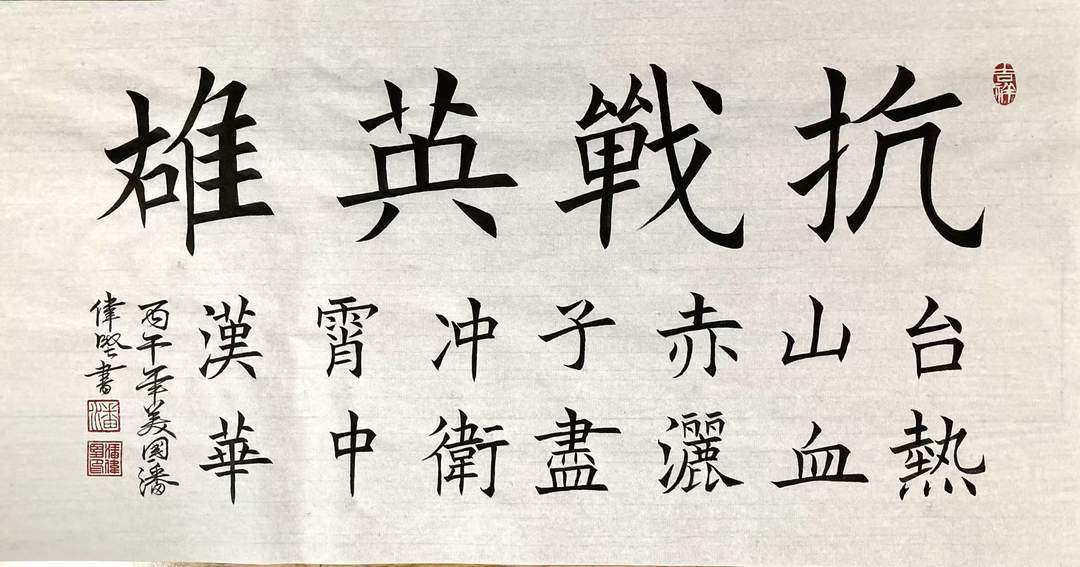 吉祥
抗戰英雄
台山赤子冲霄漢
熱血灑盡衛中華
丙午年美國潘
偉書
潘